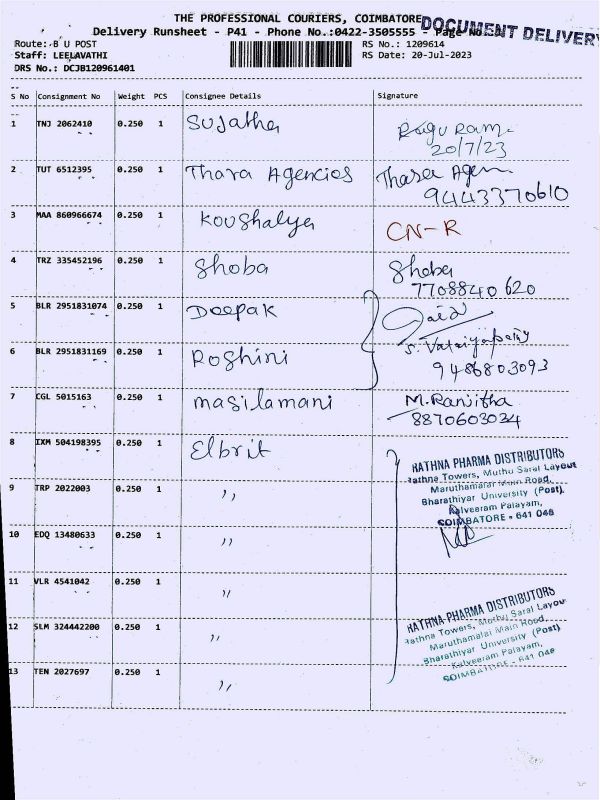 THE PROFESSIONAL COURIERS, COIMBATORE
DOCUMENT DELIVERY
Delivery Runsheet - P41 - Phone No.:0422-3505555 - Page No.
Route: B U POST
RS No.: 1209614
Staff: LEELAVATHI
RS Date: 20-Jul-2023
DRS No.: DCJB120961401
S No Consignment No Weight PCS Consignee Details Signature
1 TNJ 2062410 0.250 1 Sujatha Ragu Ram
20/7/23
2 TUT 6512395 0.250 1 Thara Agencies Thara Agen
9443370610
3 MAA 860966674 0.250 1 Koushalya CN-R
4 TRZ 335452196 0.250 1 Shoba Shoba
7708840620
5 BLR 2951831074 0.250 1 Deepak
6 BLR 2951831169 0.250 1 Roshini S.
9486803093
7 CGL 5015163 0.250 1 masilamani M.Ranjitha
8870603034
8 IXM 504198395 0.250 1 Elbrit
RATHNA PHARMA DISTRIBUTORS
Rathna Towers, Muthu Saral Layout
Maruthamalai Main Road,
Bharathiyar University (Post),
Kalveeram Palayam,
COIMBATORE - 641 046
9 TRP 2022003 0.250 1 〃
10 EDQ 13480633 0.250 1 〃
11 VLR 4541042 0.250 1 〃
12 SLM 324442200 0.250 1 〃
RATHNA PHARMA DISTRIBUTORS
Rathna Towers, Muthu Saral Layout
Maruthamalai Main Road,
Bharathiyar University (Post)
Kalveeram Palayam,
COIMBATORE - 641 046
13 TEN 2027697 0.250 1 〃